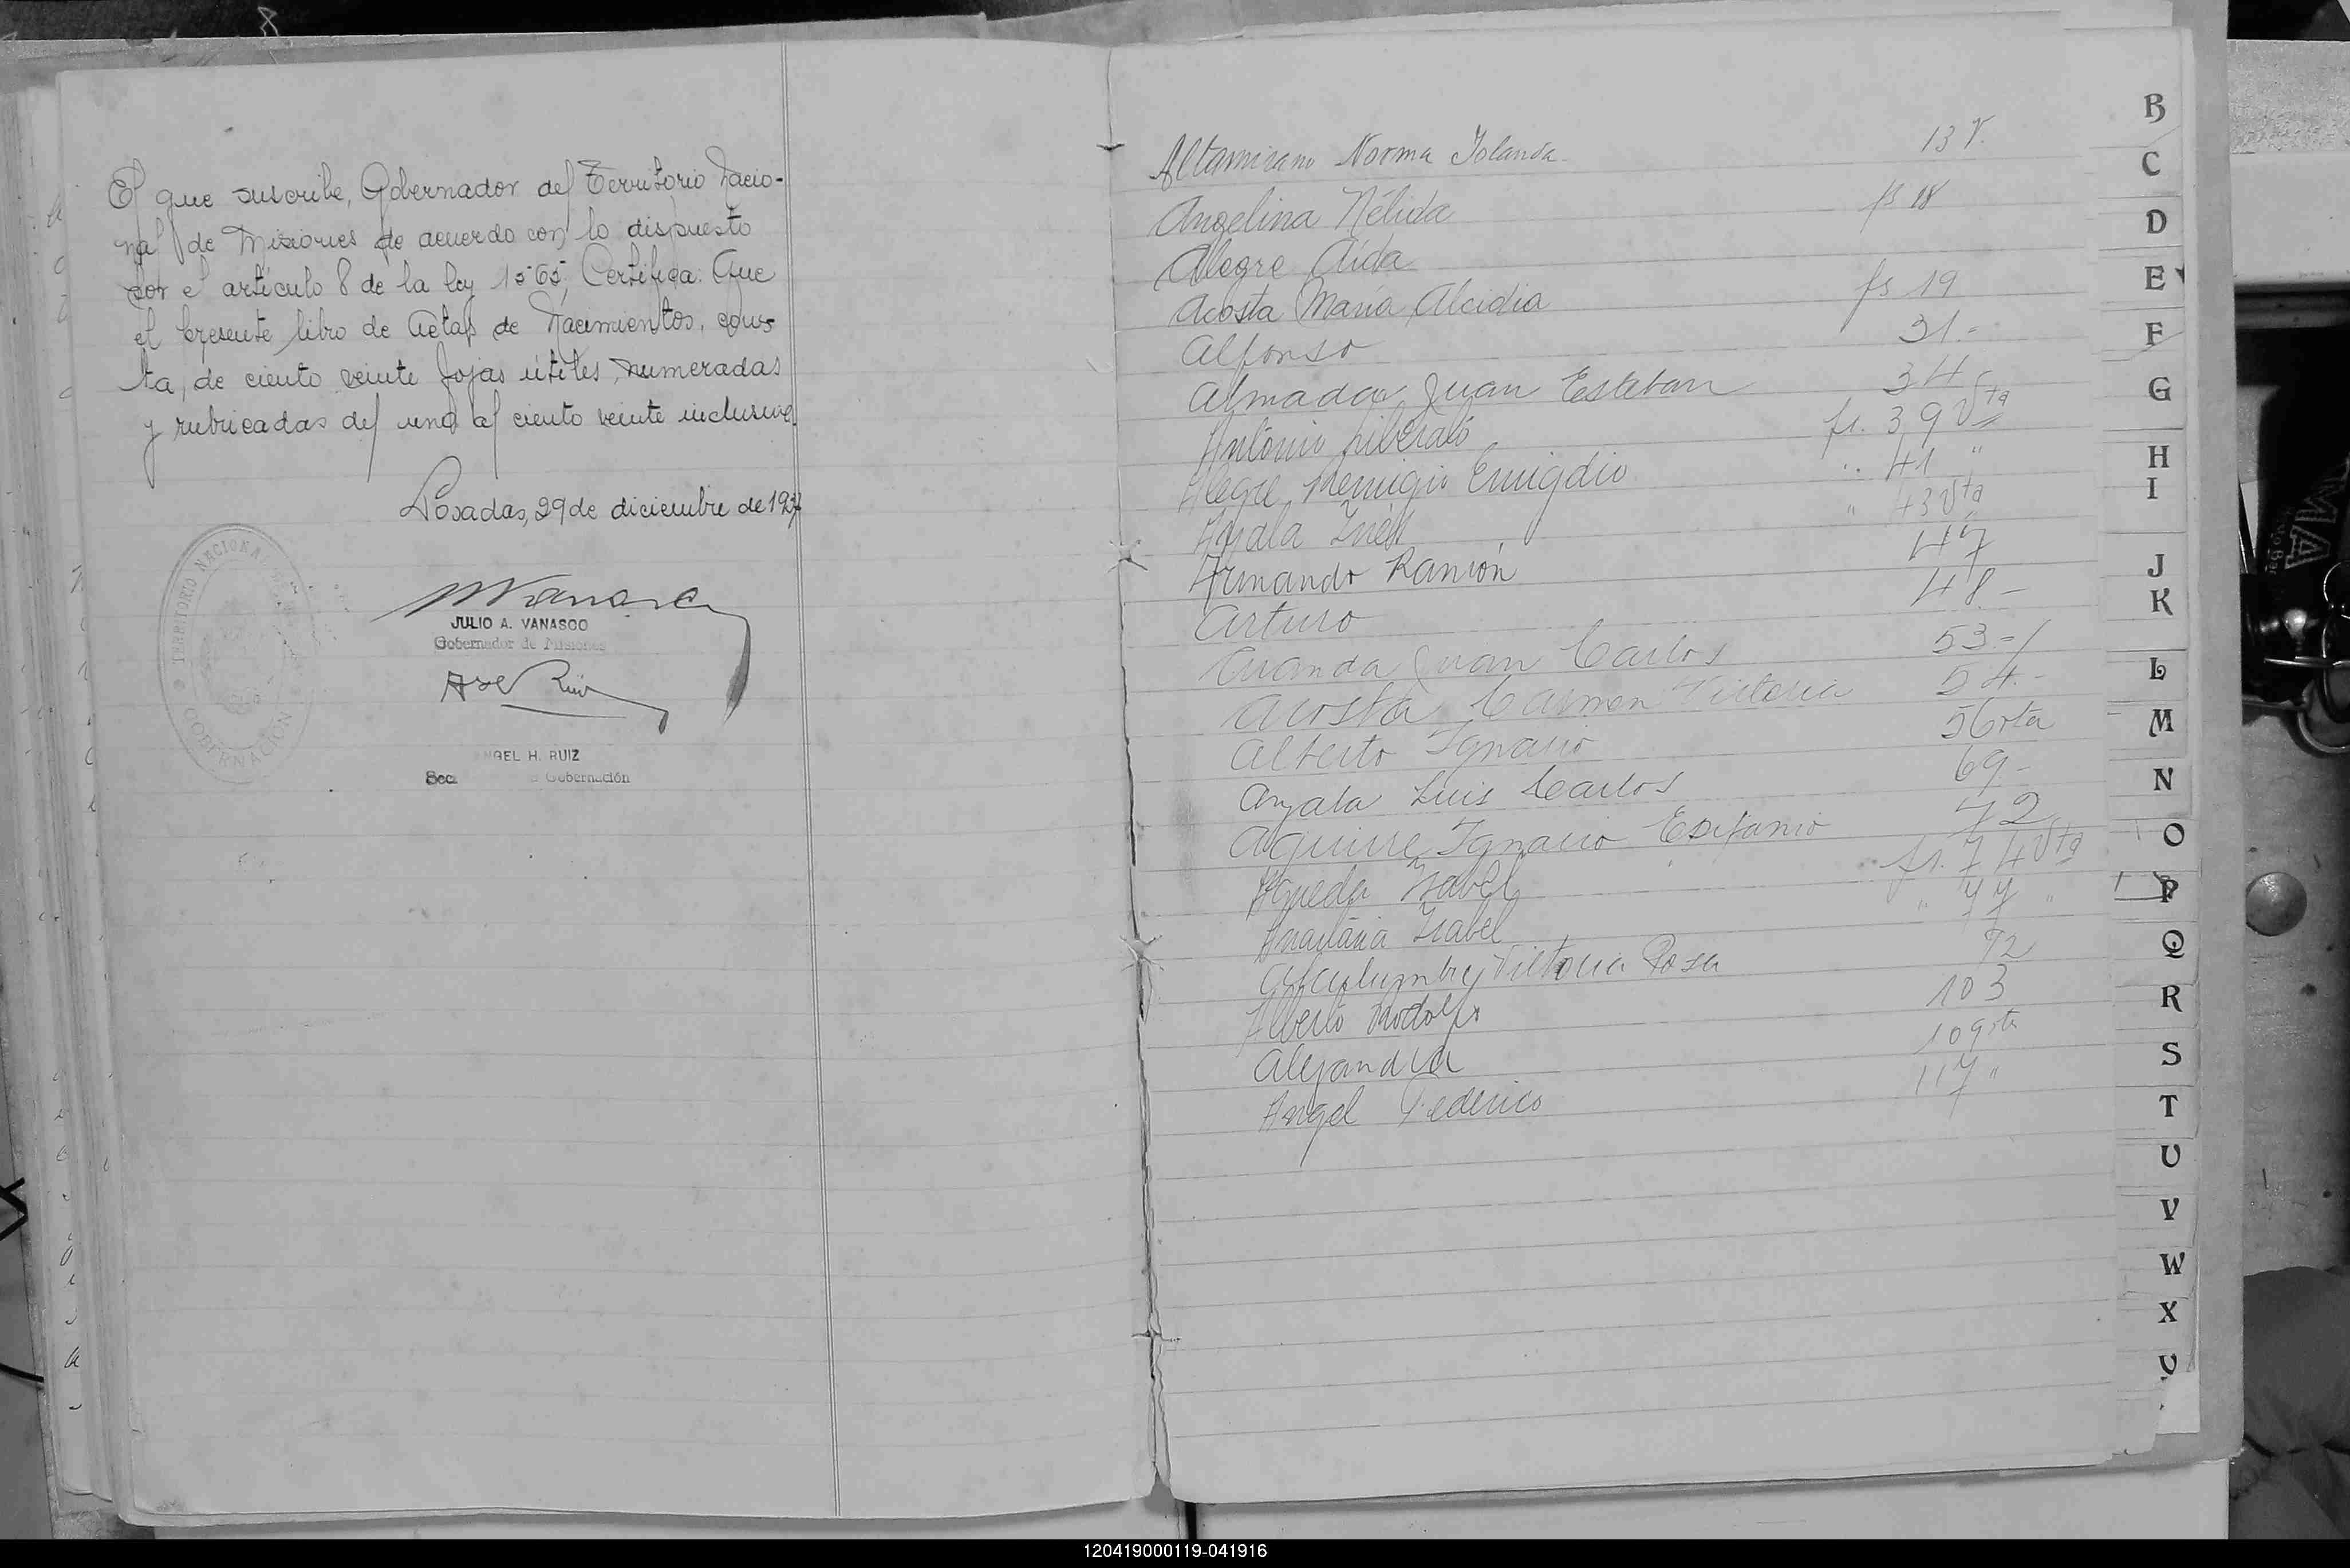 El que suscribe, Gobernador del Territorio Nacio-
nal de Misiones de acuerdo con lo dispuesto
por el artículo 8 de la ley 1565, Certifica: Que
el presente libro de Actas de Nacimientos, cons-
ta, de ciento veinte fojas útiles, numeradas
y rubricadas del uno al ciento veinte inclusive.
Posadas, 29 de diciembre de 1937
TERRITORIO NACIONAL
GOBERNACIÓN
JULIO A. VANASCO
Gobernador de Misiones
NGEL H. RUIZ
Sec Gobernación
Altamirano Norma Iolanda 13 V.
Angelina Nélida fs 18
Alegre Aída
Acosta María Alcidia fs 19
Alfonso 31.-
Almada Juan Esteban 34
Antonio Liberato fs. 39 Vta
Alegre Remigio Emigdio " 41 "
Ayala Inés " 43 Vta
Armando Ramón 47
Arturo 48.-
Juan Carlos 53.-
Acosta Carmen Victoria 54.-
Alberto Ignacio 56 vta
Ayala Luis Carlos 69.-
Aguirre Ignacio Epifanio 72
Agueda Isabel fs. 74 Vta
Anastasia Isabel " 77 "
Victoria Rosa 92
Alberto Rodolfo 103
Alejandra 109 vta
Angel Federico 117 "
B
C
D
E
F
G
H
I
J
K
L
M
N
O
P
Q
R
S
T
U
V
W
X
Y
120419000119-041916